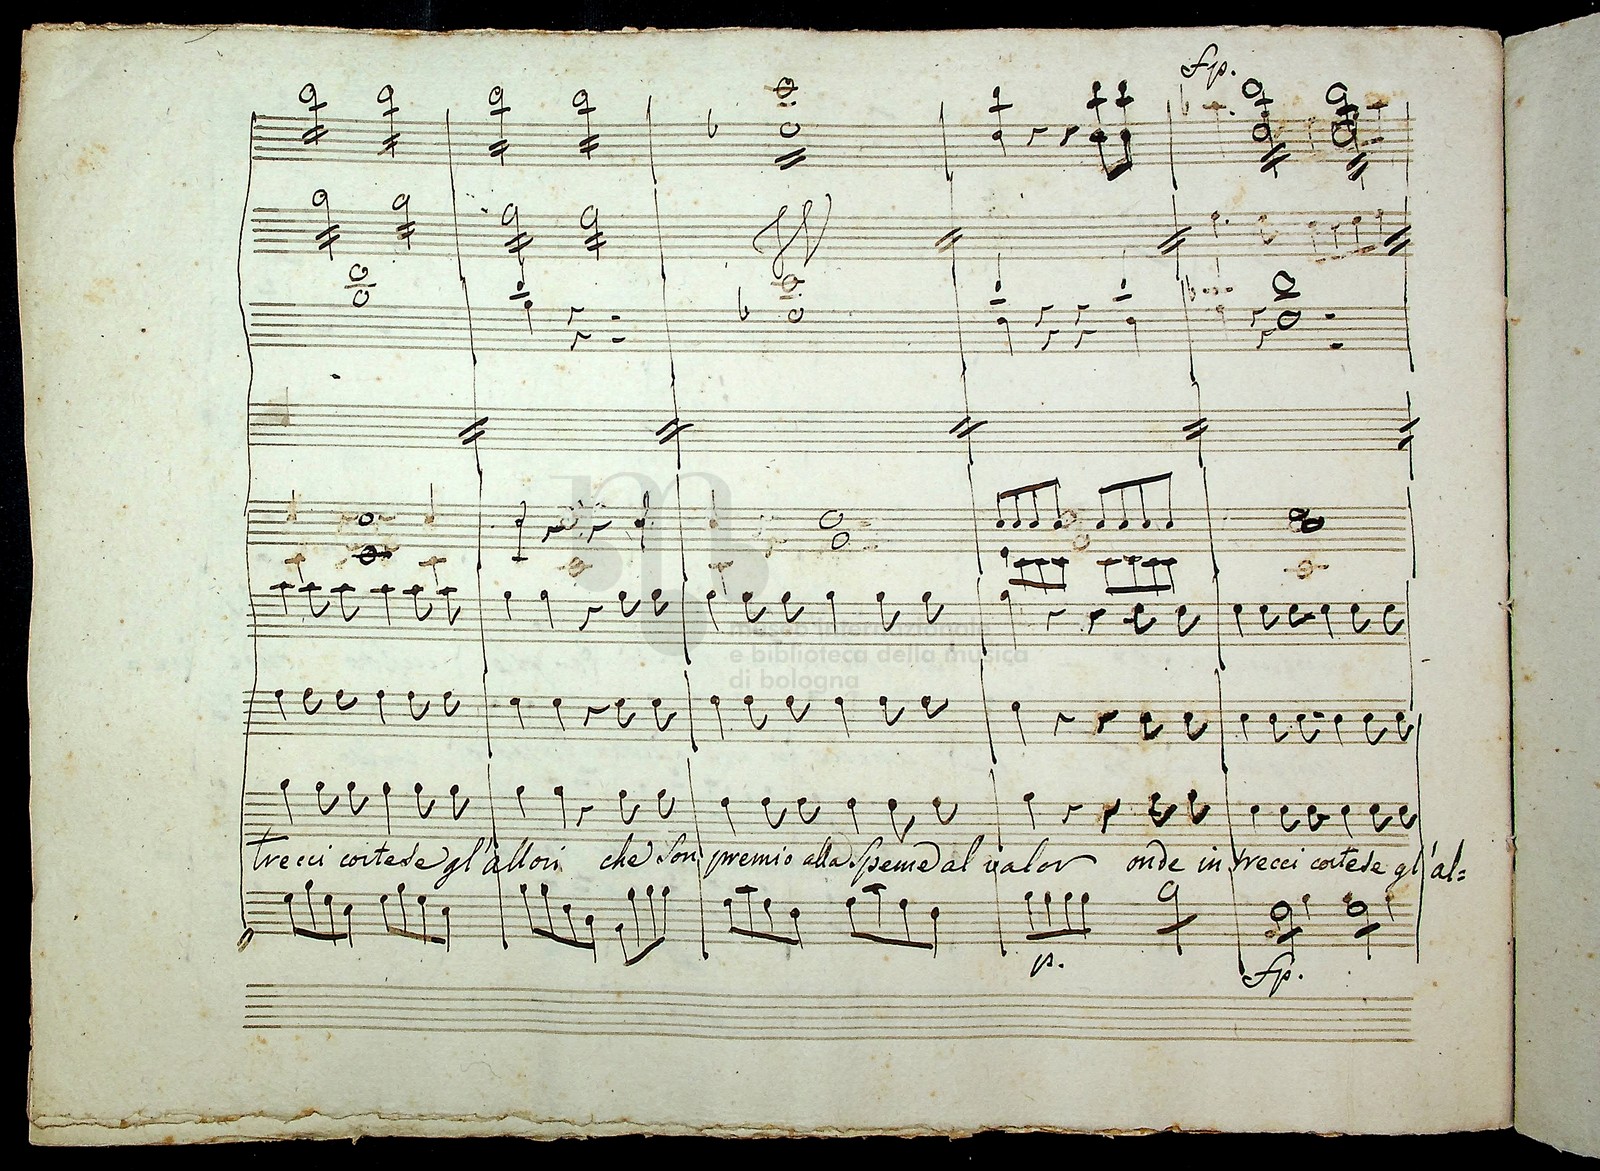 fp.
museo internazionale
e biblioteca della musica
di bologna
trecci cortese gl'allori che son premio alla speme al valor onde in trecci cortese gl'al=
p.
fp.